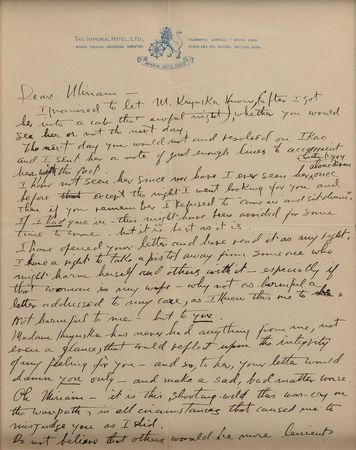 THE IMPERIAL HOTEL, LTD.,
IMPERIAL HOTEL TOKYO
Dear Miriam —
I promised to let M. Krynska know (after I got
her into a cab that awful night) whether you would
see her or not the next day.
The next day you would not and resolved on Ikao
and I sent her a note of just enough lines to acquaint
her with the fact.
I have not seen her since nor have I ever seen her once
before that except the night I went looking for you and
then if you remember I refused to "come in and sit down".
If I had gone in – this might have been avoided for some
time to come – but it is best as it is.
I have opened your letter and have read it as my right.
I have a right to take a pistol away from someone who
might harm herself and others with it – especially if
that woman is my wife – why not as harmful a
letter addressed to my care, as I knew this one to be
Not harmful to me – but to you.
Madame Krynska has never had anything from me, not
even a glance, that could reflect upon the integrity
of my feeling for you – and so, to her, your letter would
damn you only – and make a sad, bad matter worse.
Oh Miriam – it is this shooting-wild this war-cry on
the warpath, in all circumstances that caused me to
misjudge you as I did.
Do not believe that others would be more lenient